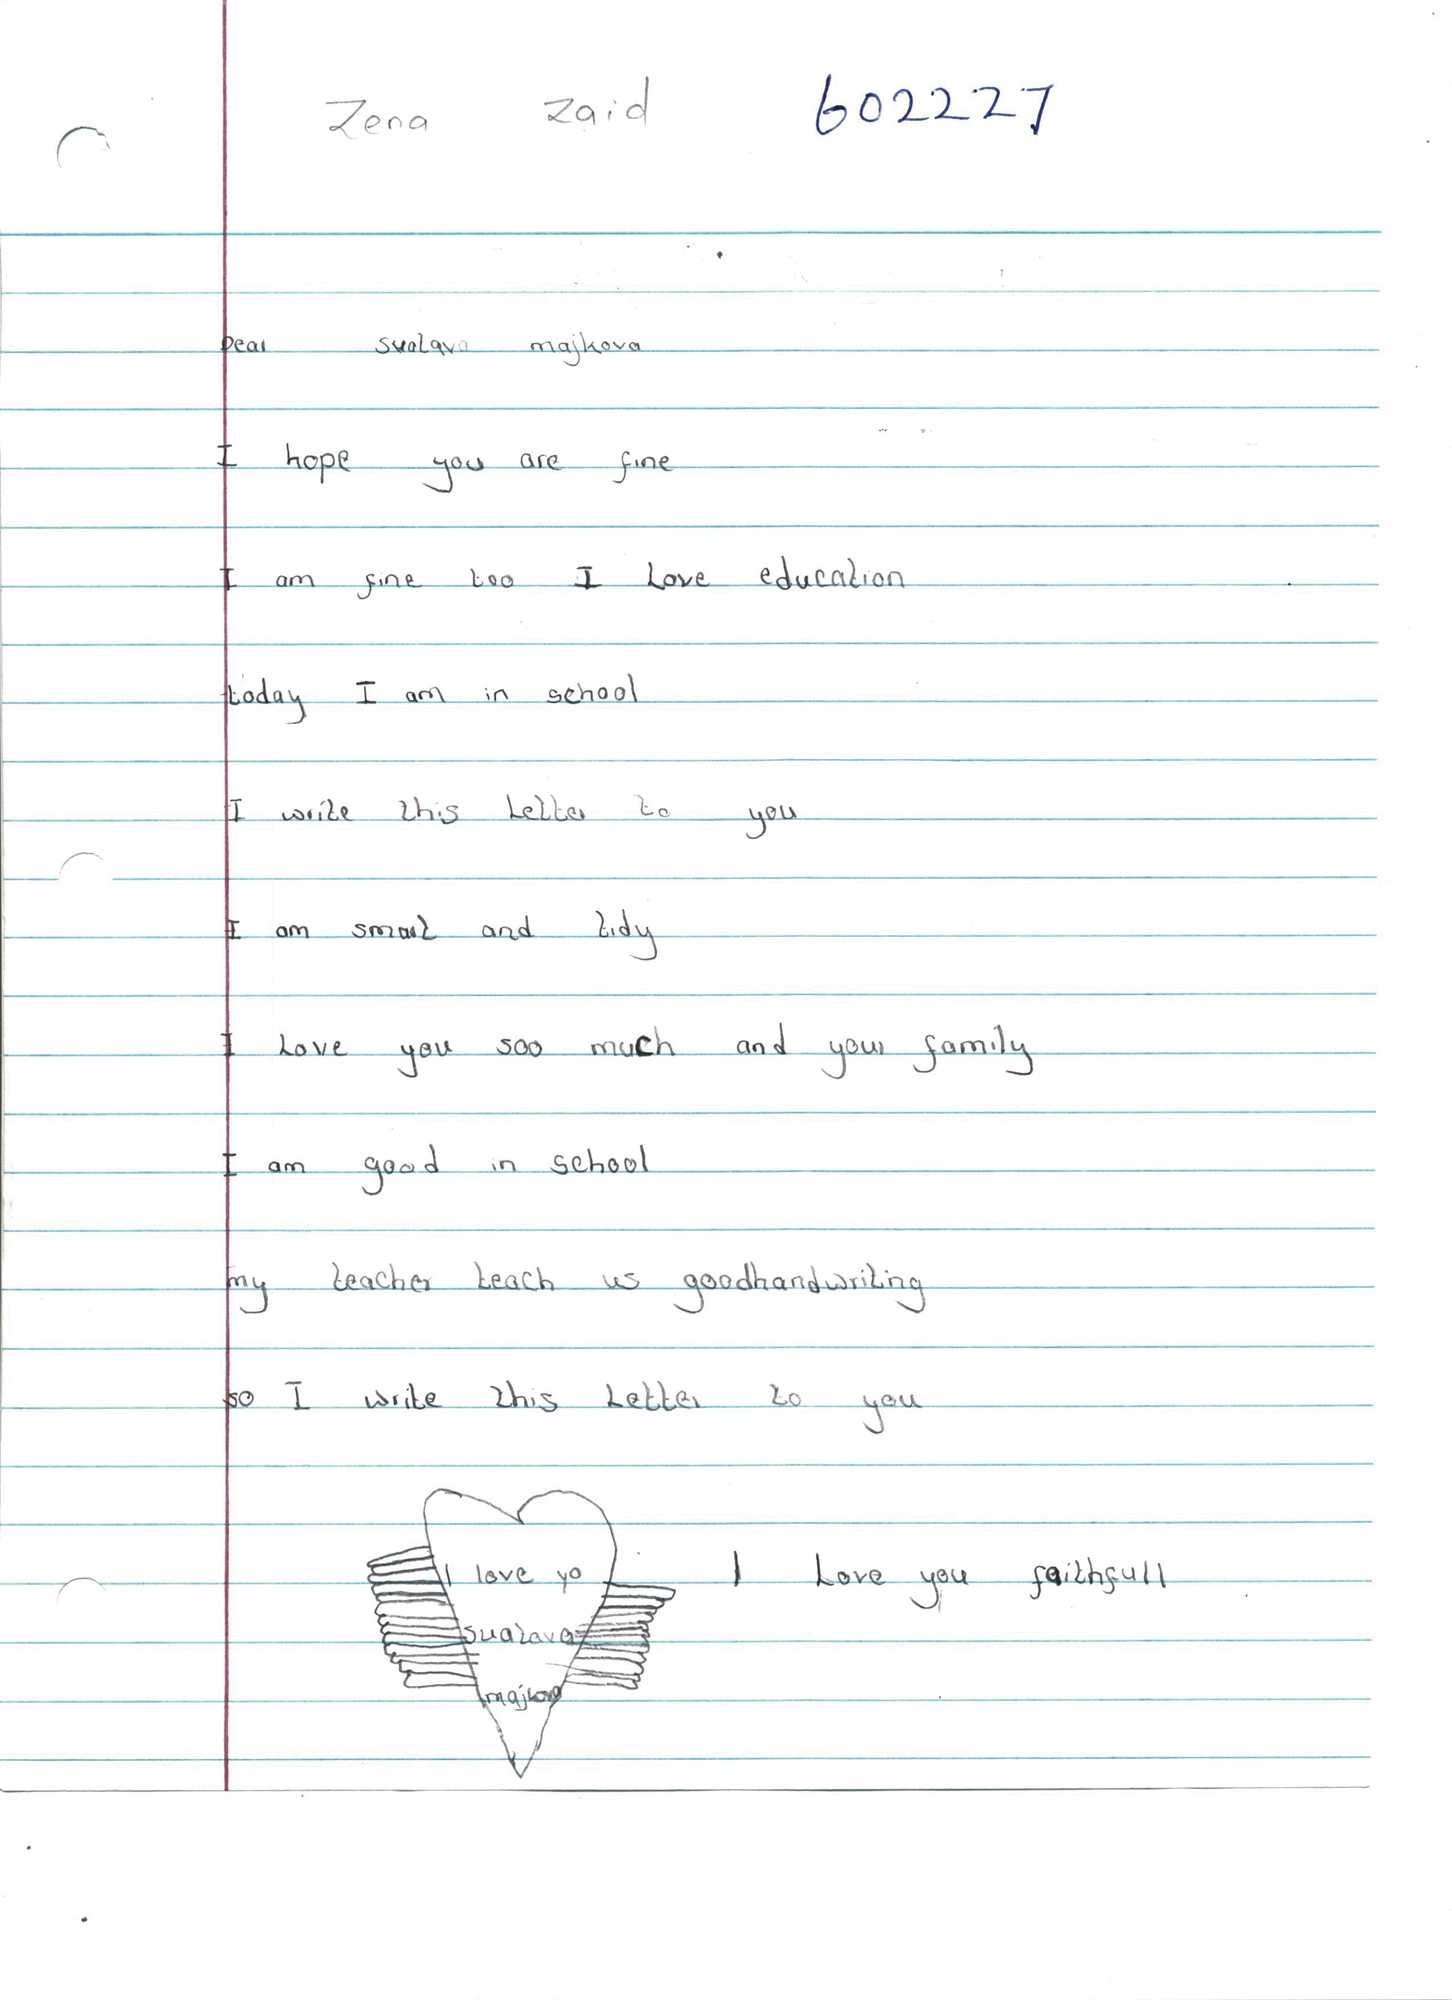 Zena Zaid 602227
Dear sualava majkova
I hope you are fine
I am fine too I Love education
today I am in school
I write this Letter to you
I am smart and tidy
I Love you soo much and your family
I am good in school
my teacher teach us goodhandwriting
so I write this Letter to you
I love yo
sualava
majkova
I Love you faithfull